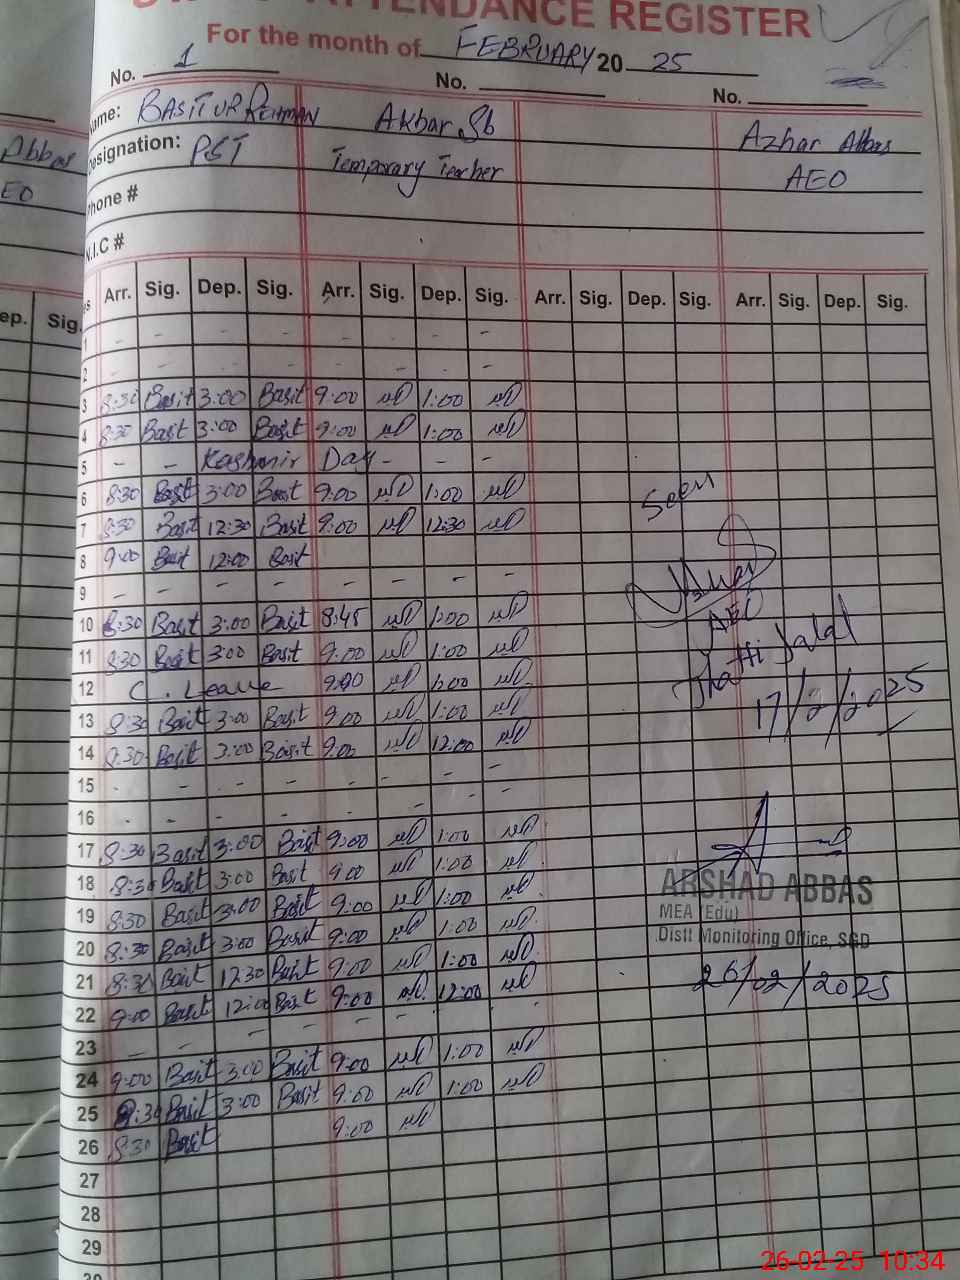 ATTENDANCE REGISTER
For the month of FEBRUARY 20 25
No. 1 No. No.
Name: BASIT UR REHMAN Akbar Sb Azhar Abbas
Designation: PST Temporary Teacher AEO
Phone #
N.I.C #
Arr. Sig. Dep. Sig. Arr. Sig. Dep. Sig. Arr. Sig. Dep. Sig. Arr. Sig. Dep. Sig.
1 - - - - - - - -
2 - - - - - - - -
3 8:30 Basit 3:00 Basit 9:00 1:00
4 8:30 Basit 3:00 Basit 9:00 1:00
5 - - Kashmir Day - - -
6 8:30 Basit 3:00 Basit 9:00 1:00
7 8:30 Basit 12:30 Basit 9:00 12:30
8 9:00 Basit 12:00 Basit
9 - - - - - - - -
10 8:30 Basit 3:00 Basit 8:45 1:00
11 8:30 Basit 3:00 Basit 9:00 1:00
12 C. Leave 9:00 1:00
13 8:30 Basit 3:00 Basit 9:00 1:00
14 8:30 Basit 3:00 Basit 9:00 12:00
15 - - - - - - - -
16 - - - - - - -
17 8:30 Basit 3:00 Basit 9:00 1:00
18 8:30 Basit 3:00 Basit 9:00 1:00
19 8:30 Basit 3:00 Basit 9:00 1:00
20 8:30 Basit 3:00 Basit 9:00 1:00
21 8:30 Basit 12:30 Basit 9:00 1:00
22 9:00 Basit 12:00 Basit 9:00 12:00
23 - - - - - - - -
24 9:00 Basit 3:00 Basit 9:00 1:00
25 8:30 Basit 3:00 Basit 9:00 1:00
26 8:30 Basit 9:00
27
28
29
Seen
AEO
Thatti Jalal
17/2/2025
ARSHAD ABBAS
MEA (Edu)
Distt Monitoring Office, SGD
26/02/2025
Abbas
EO
ep. Sig.
26-02-25 10:34